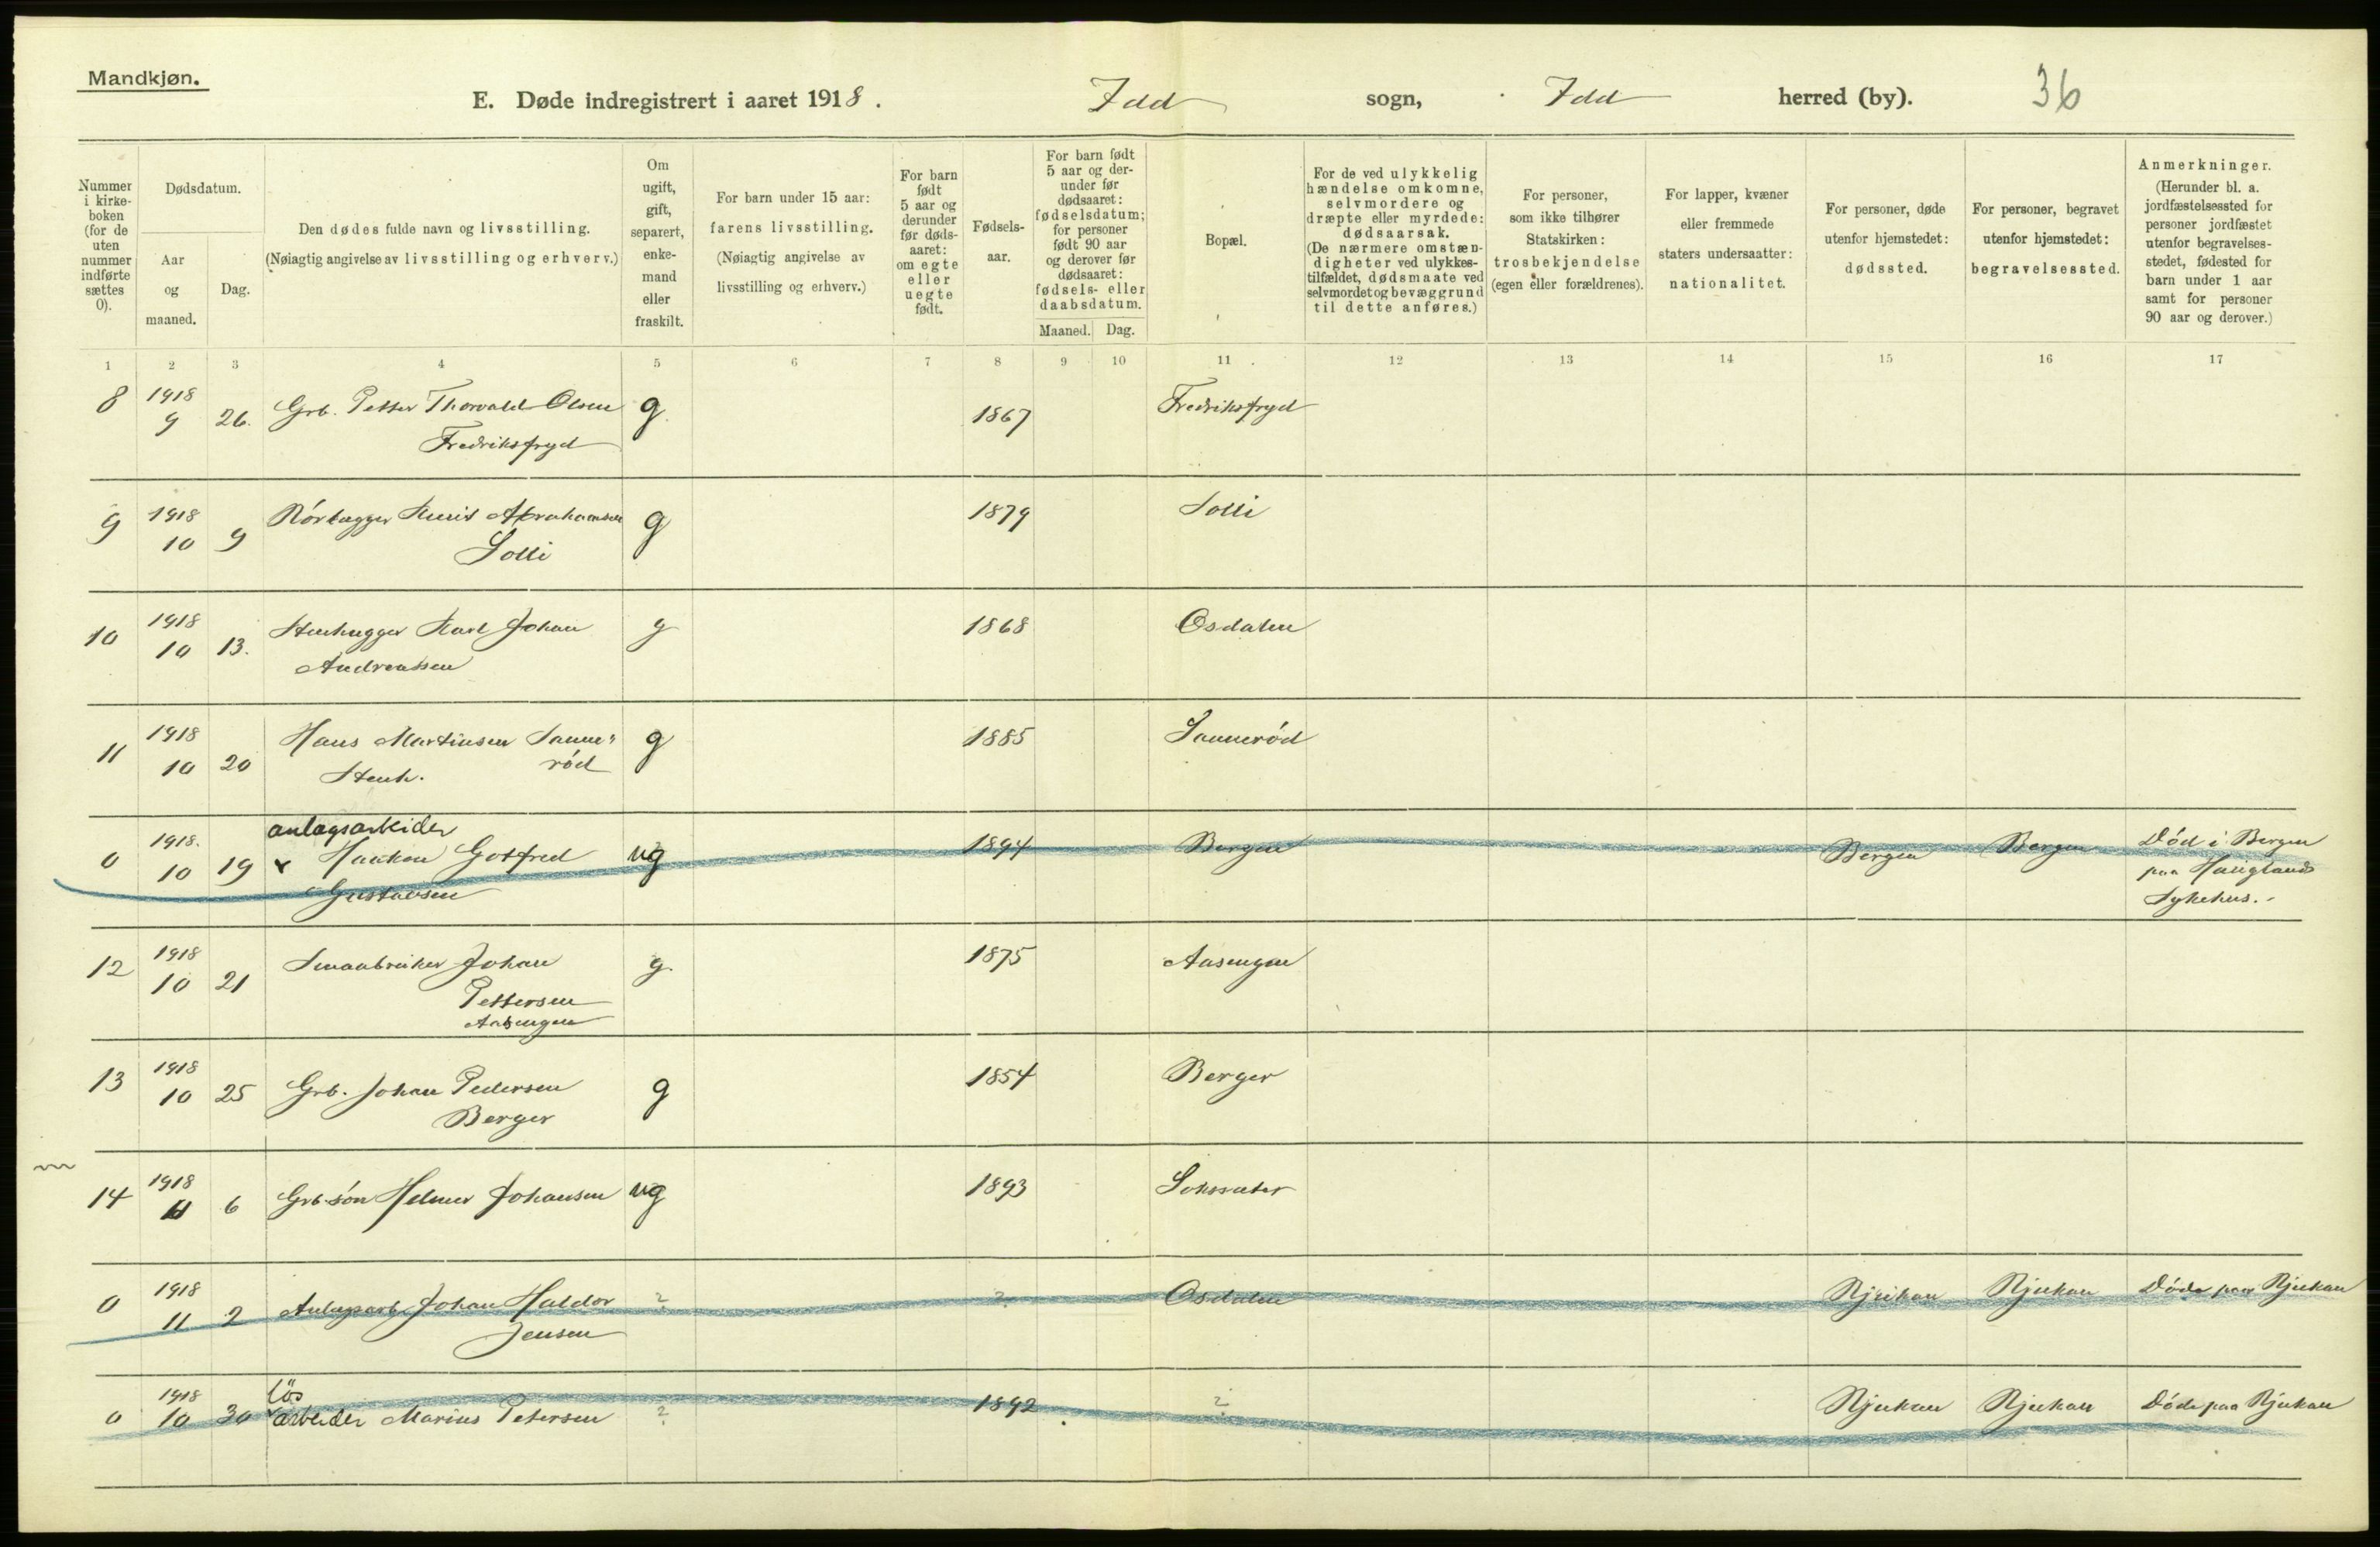 Mandkjøn.
E. Døde indregistrert i aaret 1918. Idd sogn, Idd herred (by). 36
Nummer i kirke-boken (for de uten nummer indførte sættes 0).
Dødsdatum.
Aar og maaned.
Dag.
Den dødes fulde navn og livsstilling.
(Nøiagtig angivelse av livsstilling og erhverv.)
Om ugift, gift, separert, enke-mand eller fraskilt.
For barn under 15 aar:
farens livsstilling.
(Nøiagtig angivelse av
livsstilling og erhverv.)
For barn født 5 aar og derunder før døds-aaret: om egte eller uegte født.
Fødsels-aar.
For barn født 5 aar og der-under før dødsaaret: fødselsdatum; for personer født 90 aar og derover før dødsaaret: fødsels- eller daabsdatum.
Maaned. Dag.
Bopæl.
For de ved ulykkelig hændelse omkomne, selvmordere og dræpte eller myrdede: dødsaarsak.
(De nærmere omstæn-digheter ved ulykkes-tilfældet, dødsmaate ved selvmordet og bevæggrund til dette anføres.)
For personer, som ikke tilhører Statskirken: trosbekjendelse (egen eller forældrenes).
For lapper, kvæner eller fremmede staters undersaatter: nationalitet.
For personer, døde utenfor hjemstedet: dødssted.
For personer, begravet utenfor hjemstedet: begravelsessted.
Anmerkninger.
(Herunder bl. a. jordfæstelsessted for personer jordfæstet utenfor begravelses-stedet, fødested for barn under 1 aar samt for personer 90 aar og derover.)
1 2 3 4 5 6 7 8 9 10 11 12 13 14 15 16 17
8 1918 9 26. Grb. Petter Thorvald Olsen g. 1867 Fredriksfryd
Fredriksfryd
9 1918 10 9 Abrahamsen g 1879 Solli
Solli
10 1918 10 13. Stenhugger Karl Johan g 1868 Osdalen
Andreassen
11 1918 10 20 Hans Martinsen Sanne- g 1885 Sannerød
Stenh. rød
anlægsarbeider
0 1918. 10 19 x Haakon Gotfred ug 1894 Bergen Bergen Bergen Død i Bergen
Gustavsen paa Haugland
Sykehus.-
12 1918 10 21 Smaabruker Johan g. 1875 Aasengen
Pettersen
Aasengen
13 1918 10 25 Grb. Johan Pedersen g 1854 Berger
Berger
14 1918 11 6 Grb.søn Helmer Johansen ug 1893
0 1918 11 2 Anlægsarb. Johan Haldor ? ? Osdalen Rjukan Rjukan Døde paa Rjukan
Jensen
løs
0 1918 10 30 arbeider Marius Petersen ? 1892 ? Rjukan Rjukan Døde paa Rjukan